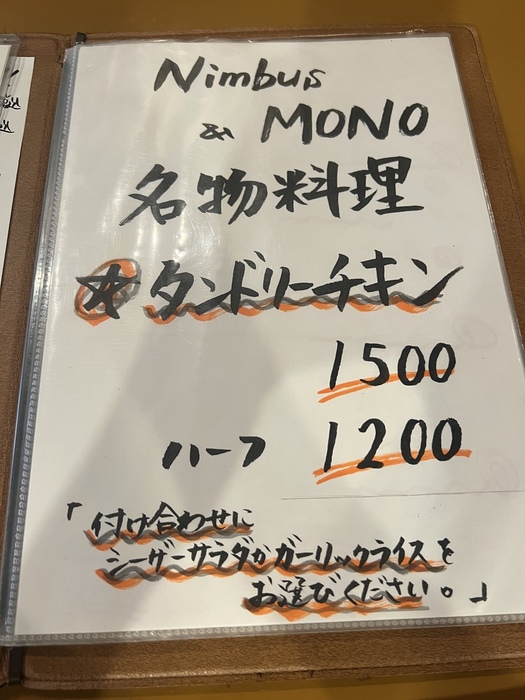 Nimbus
& MONO
名物料理
☆タンドリーチキン
1500
ハーフ 1200
「付け合わせに
シーザーサラダかガーリックライスを
お選びください。」